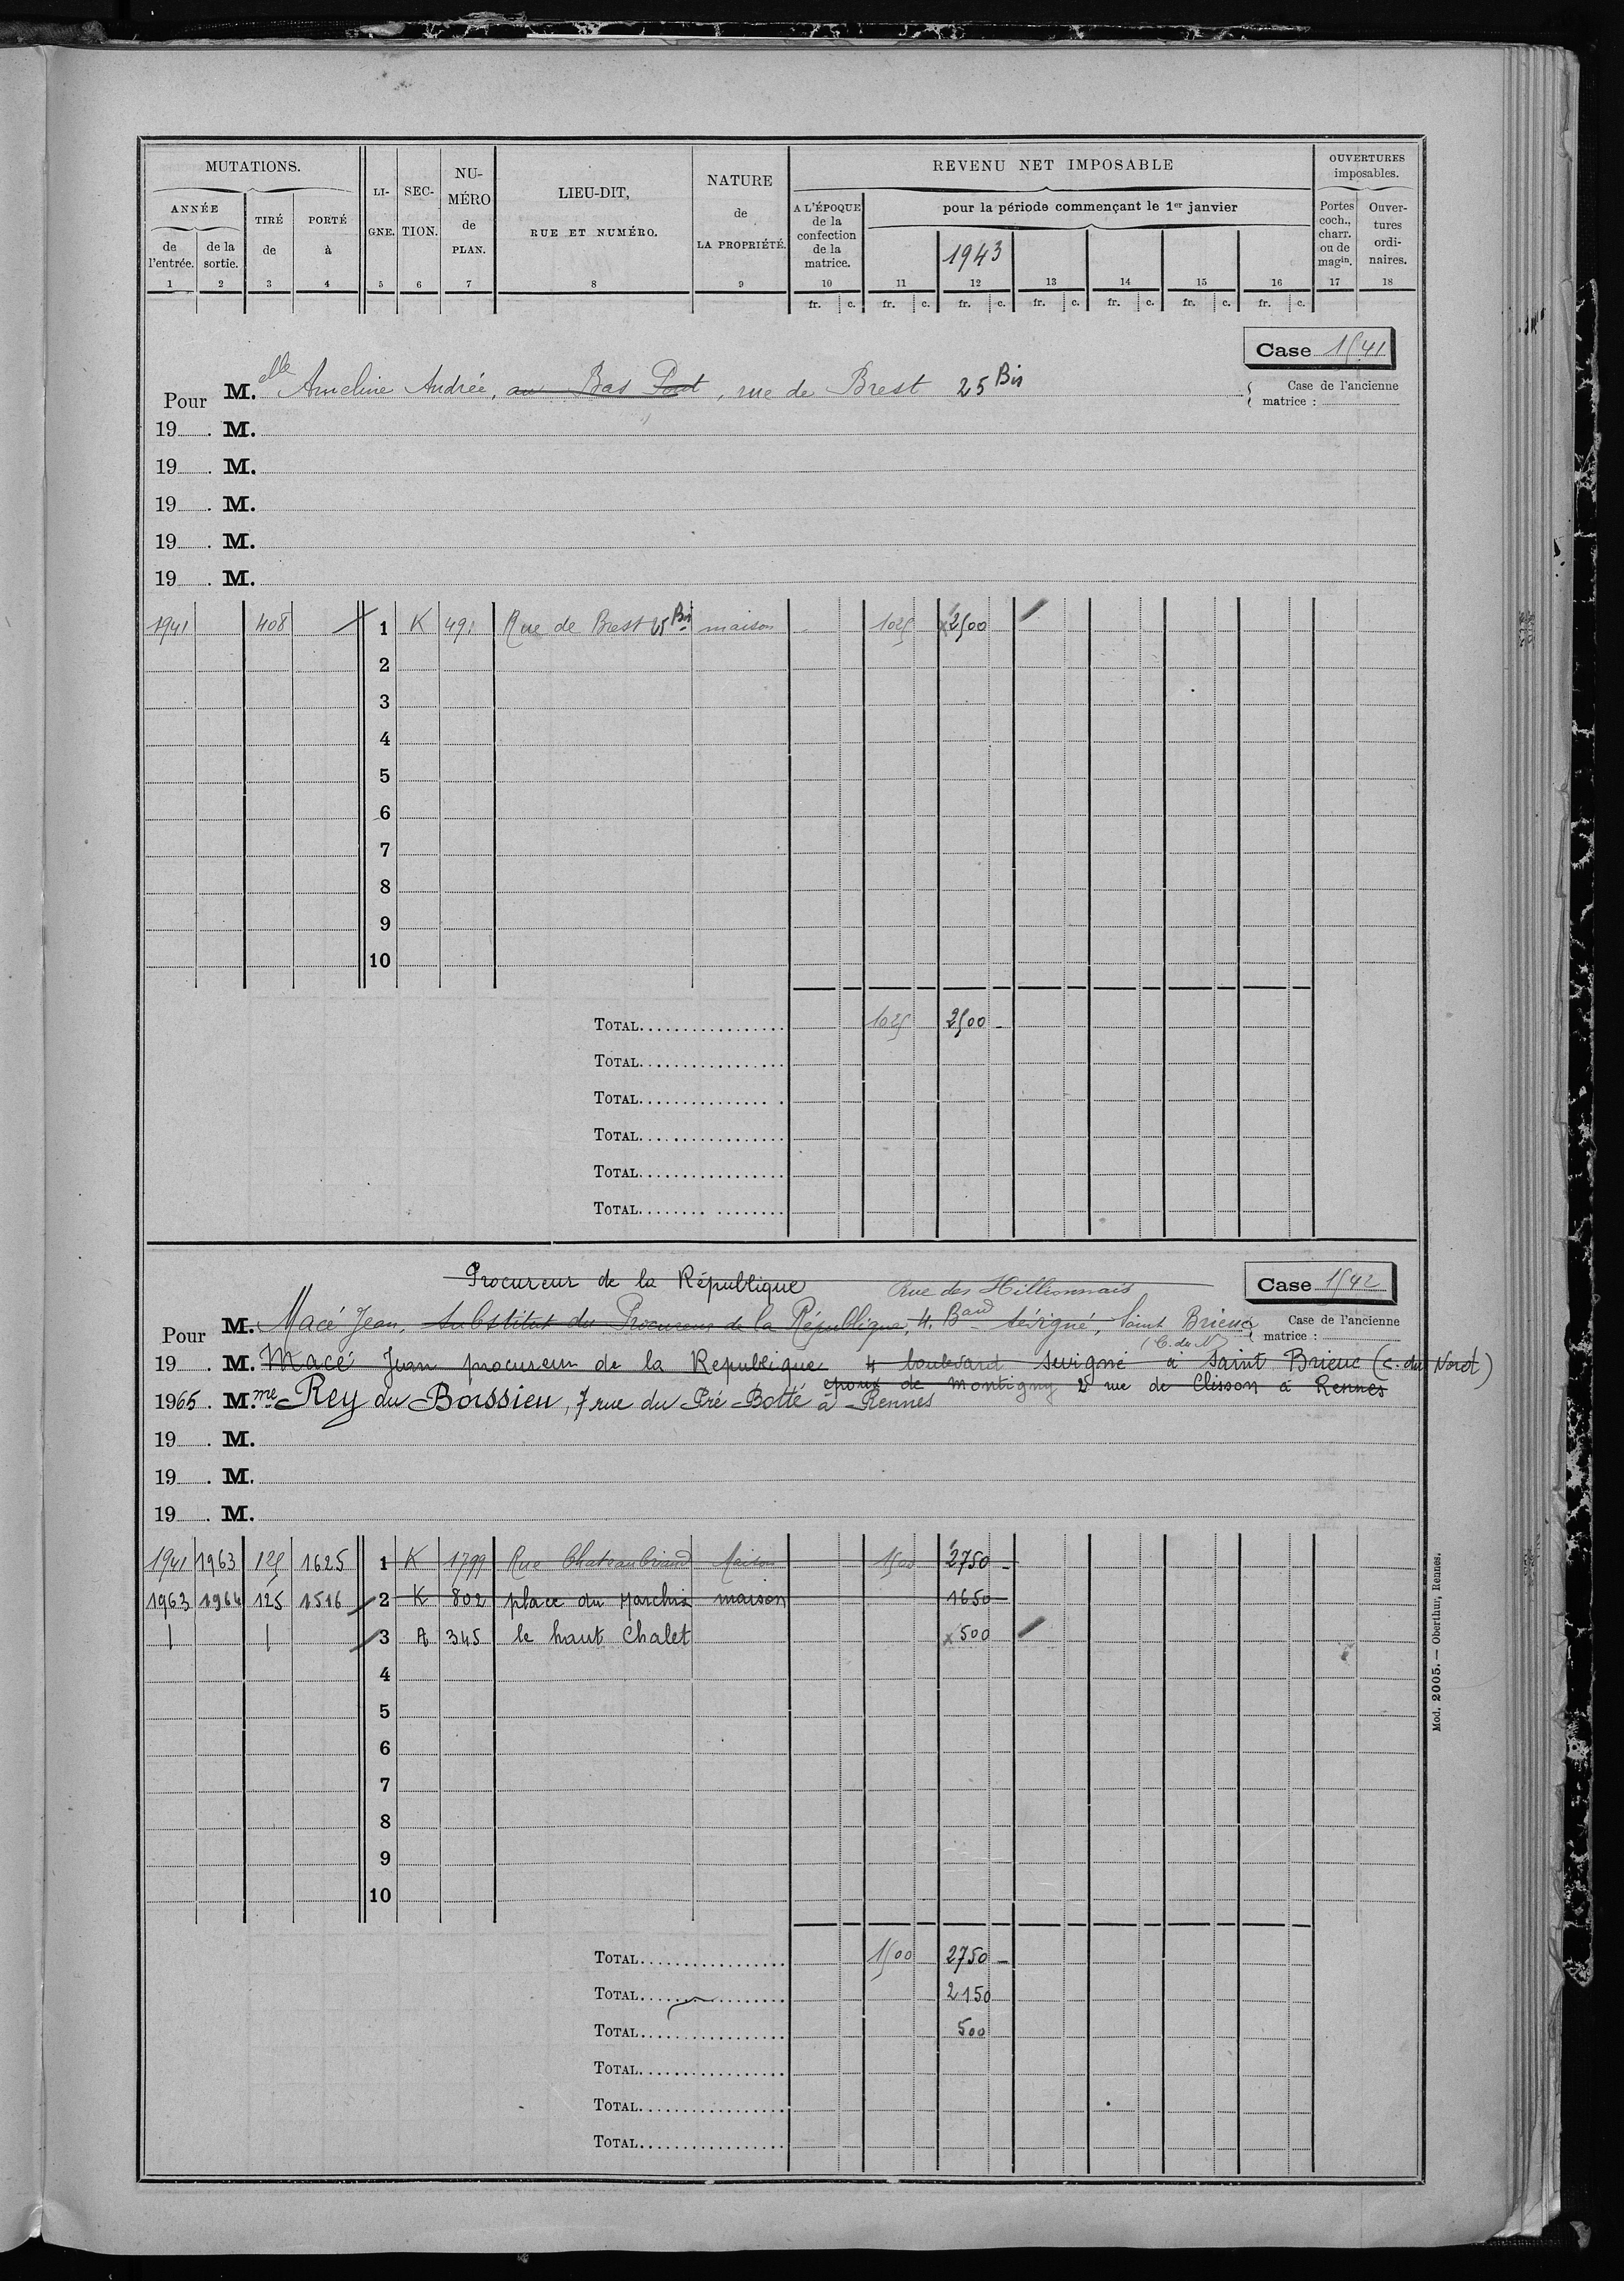 MUTATIONS.
ANNÉE
de l'entrée.
de la sortie.
TIRÉ de
PORTÉ à
LIGNE.
SECTION.
NUMÉRO de PLAN.
LIEU-DIT, RUE ET NUMÉRO.
NATURE de LA PROPRIÉTÉ.
REVENU NET IMPOSABLE
A L'ÉPOQUE de la confection de la matrice.
pour la période commençant le 1er janvier
1943
OUVERTURES imposables.
Portes coch., charr. ou de magin.
Ouvertures ordinaires.
1 2 3 4 5 6 7 8 9 10 11 12 13 14 15 16 17 18
fr. c. fr. c. fr. c. fr. c. fr. c. fr. c. fr. c.
Case 1541
Pour M.elle Ameline Andrée, au Bas Pont, rue de Brest 25 Bis
Case de l'ancienne matrice :
19 . M.
19 . M.
19 . M.
19 . M.
19 . M.
1941 408 1 K 491 Rue de Brest 25 Bis maison 1025 2500
2
3
4
5
6
7
8
9
10
TOTAL 1025 2500 -
TOTAL
TOTAL
TOTAL
TOTAL
TOTAL
Procureur de la République
Case 1542
Rue des Hillionnais
Pour M. Macé Jean, Substitut du Procureur de la République, 4. Bard Sévigné, Saint Brieuc
(C. du N)
Case de l'ancienne matrice :
19 . M. Macé Jean procureur de la Republique 4 boulevard Sevigné à Saint Brieuc (C. du Nord)
epoux de Montigny 2 rue de Clisson à Rennes
1965 . M.me Rey du Boissieu, 7 rue du Pré Botté à Rennes
19 . M.
19 . M.
19 . M.
1941 1963 125 1625 1 K 1799 Rue Chateaubriand Maison 1500 2750 -
1963 1964 125 1516 2 K 802 place du Marchix maison 1650
3 A 345 le haut Chalet 500
4
5
6
7
8
9
10
TOTAL 1500 2750 -
TOTAL 2150
TOTAL 500
TOTAL
TOTAL
TOTAL
Mod. 2005. — Oberthur, Rennes.